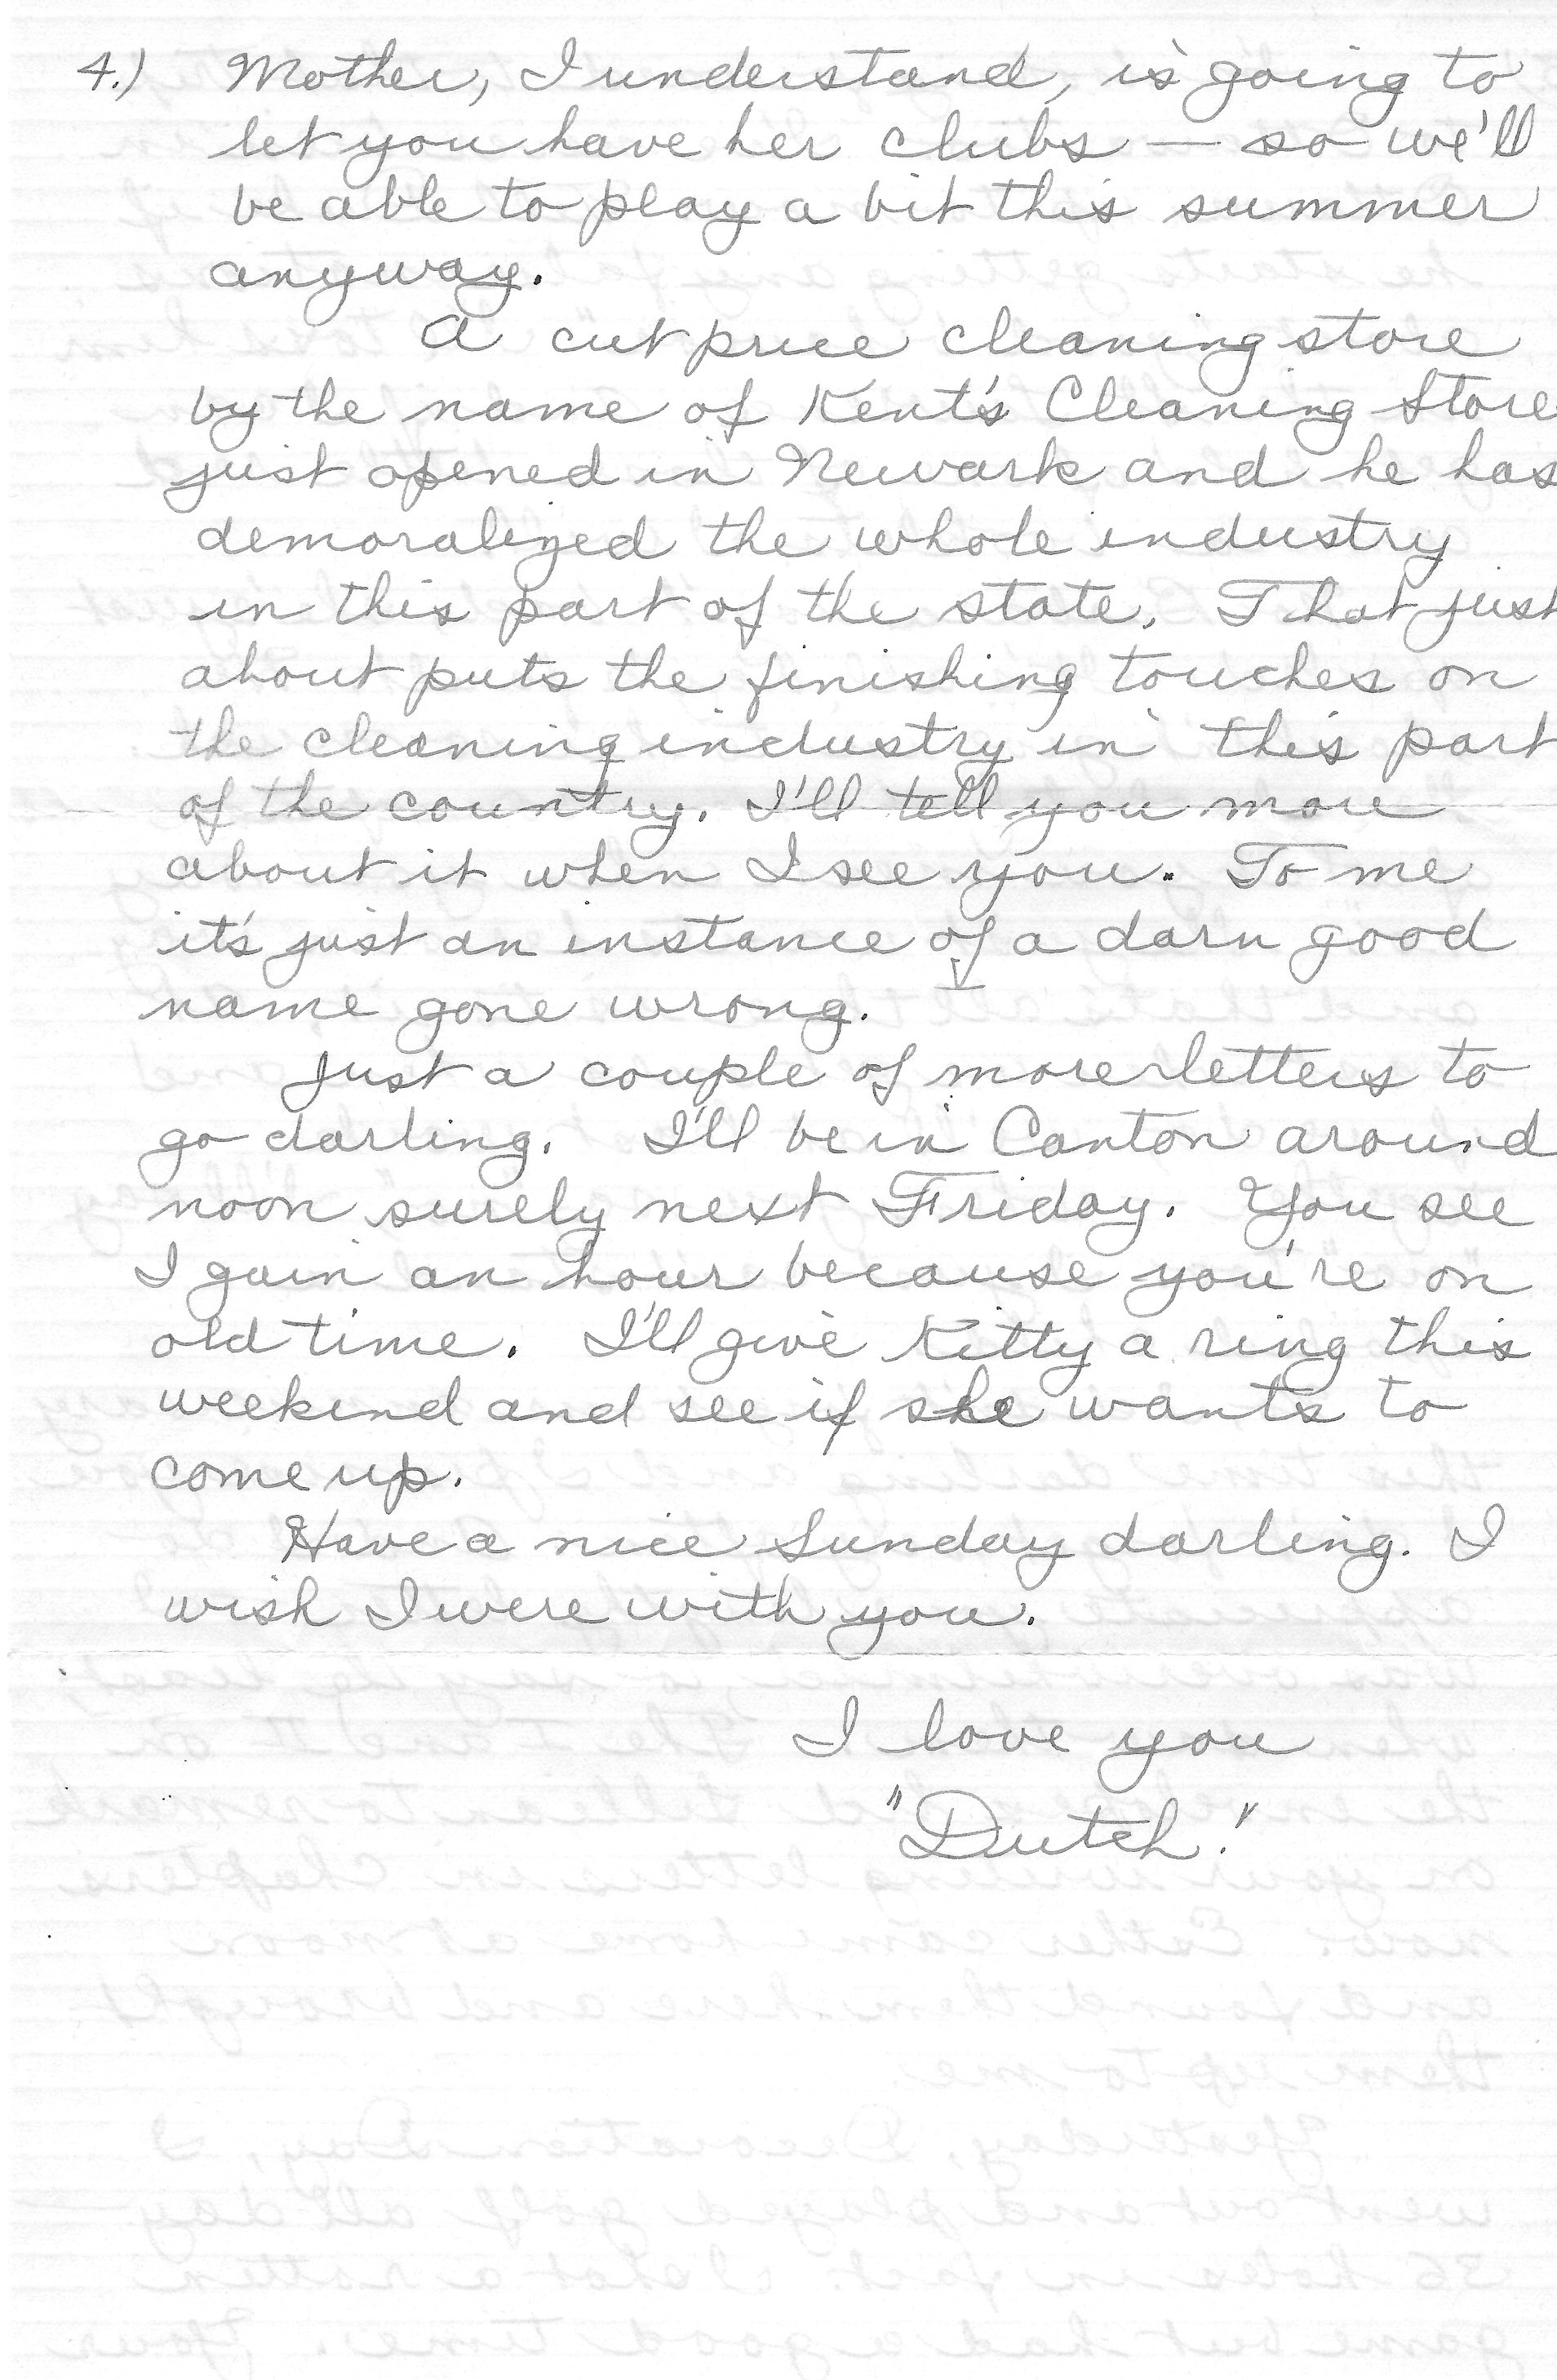 4.) Mother, I understand, is going to
let you have her clubs — so we'll
be able to play a bit this summer
anyway.
A cut price cleaning store
by the name of Kent's Cleaning Store
just opened in Newark and he has
demoralized the whole industry
in this part of the state. That just
about puts the finishing touches on
the cleaning industry in this part
of the country. I'll tell you more
about it when I see you. To me
it's just an instance of a darn good
name gone wrong.
Just a couple of more letters to
go darling. I'll be in Canton around
noon surely next Friday. You see
I gain an hour because you're on
old time. I'll give Kitty a ring this
weekend and see if she wants to
come up.
Have a nice Sunday darling. I
wish I were with you.
I love you
"Dutch."